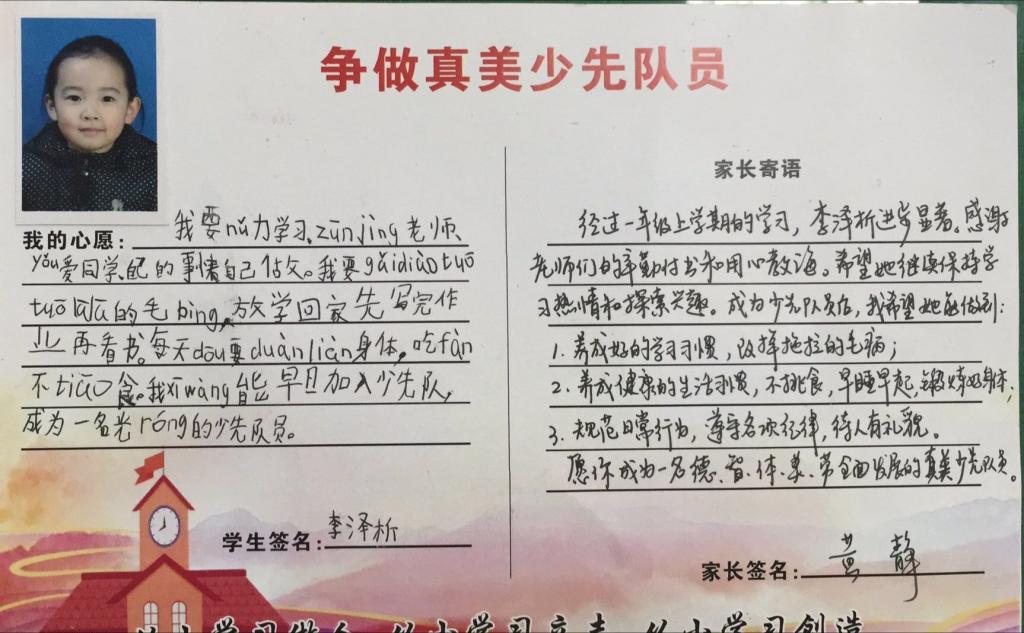 争做真美少先队员
我的心愿:我要nǔ力学习、zūn jìng老师、
yǒu爱同学、自己的事情自己做。我要gǎidiào tuō
tuō lālā的毛bìng,放学回家先写完作
业再看书。每天dōu要duànliàn身体,吃fàn
不tiāo食。我xīwàng能早日加入少先队,
成为一名光róng的少先队员。
学生签名:李泽析
家长寄语
经过一年级上学期的学习,李泽析进步显著。感谢
老师们的辛勤付出和用心教诲。希望她继续保持学
习热情和探索兴趣。成为少先队员后,我希望她能做到:
1.养成好的学习习惯,改掉拖拉的毛病;
2.养成健康的生活习惯,不挑食,早睡早起,锻炼好身体;
3.规范日常行为,遵守各项纪律,待人有礼貌。
愿你成为一名德、智、体、美、劳全面发展的真美少先队员。
家长签名:黄静